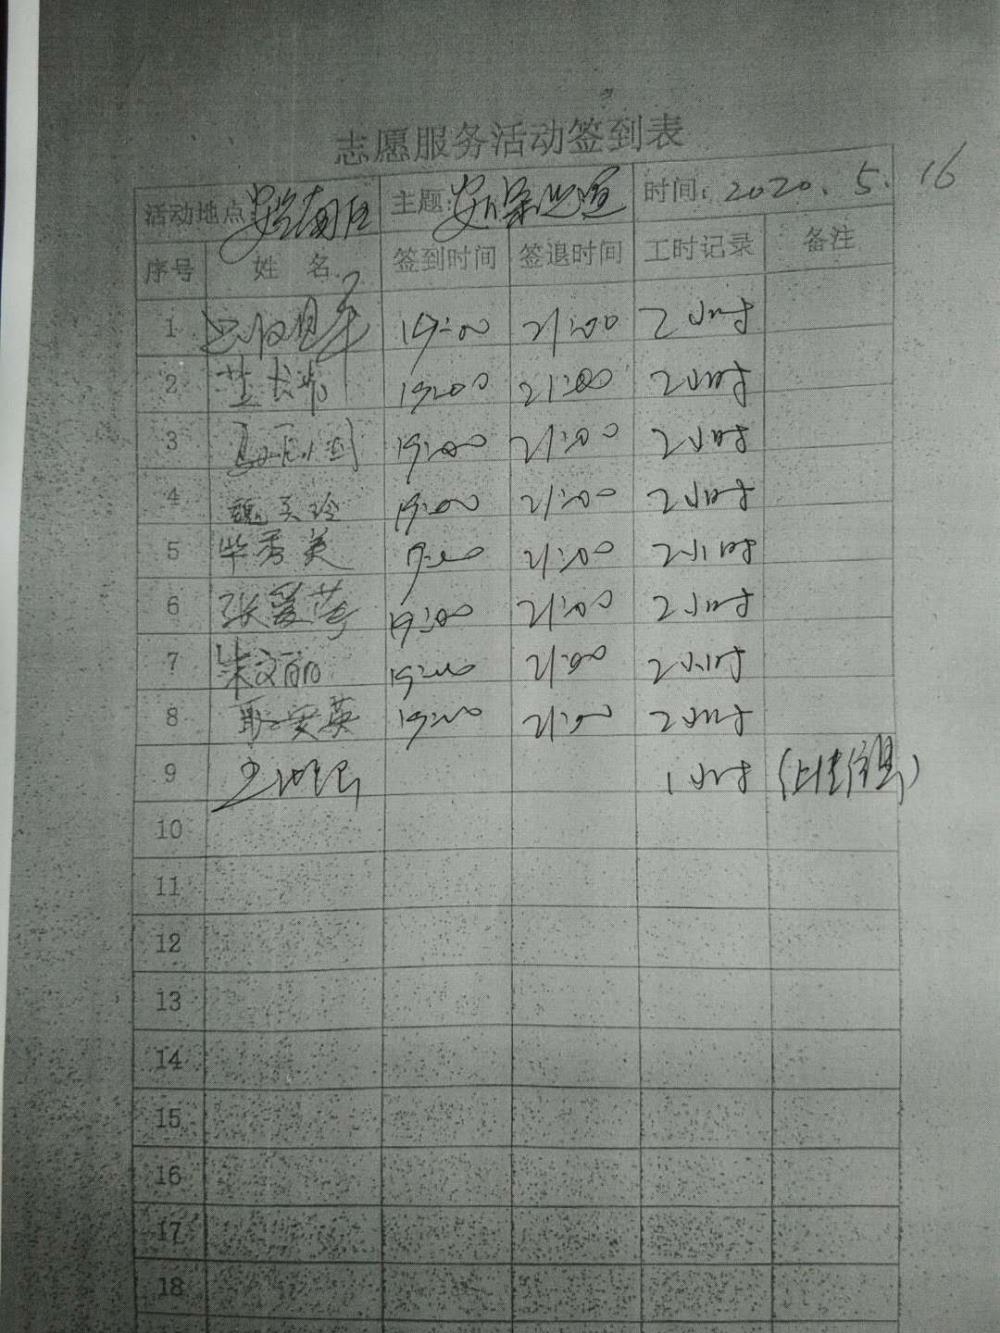 志愿服务活动签到表
活动地点 南区 主题: 时间: 2020.5.16
序号 姓 名 签到时间 签退时间 工时记录 备注
1 19:00 21:00 2小时
2 19:00 21:00 2小时
3 19:00 21:00 2小时
4 魏美玲 19:00 21:00 2小时
5 毕秀美 19:00 21:00 2小时
6 张爱萍 19:00 21:00 2小时
7 朱文丽 19:00 21:00 2小时
8 耿安英 19:00 21:00 2小时
9 1小时 (上传信息)
10
11
12
13
14
15
16
17
18